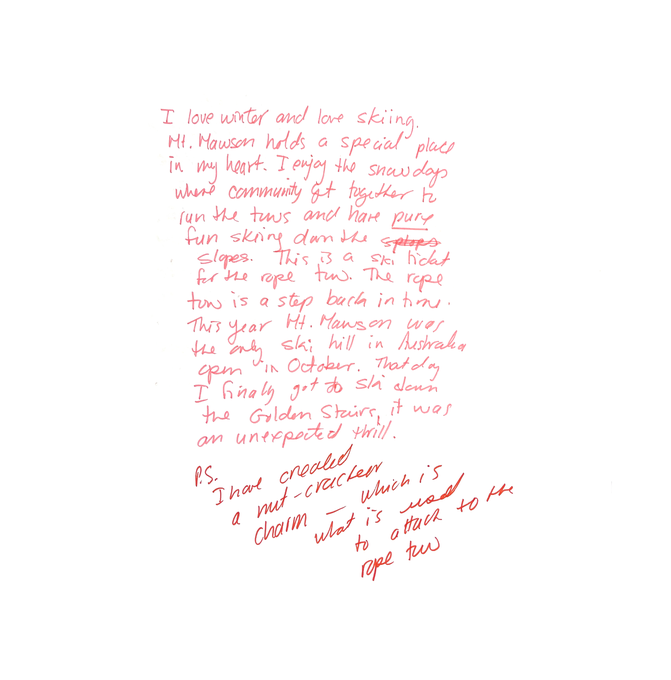 I love winter and love skiing.
Mt. Mawson holds a special place
in my heart. I enjoy the snow days
where community get together to
run the tows and have pure
fun skiing down the slopes
slopes. This is a ski ticket
for the rope tow. The rope
tow is a step back in time.
This year Mt. Mawson was
the only ski hill in Australia
open in October. That day
I finally got to ski down
the Golden Stairs, it was
an unexpected thrill.
P.S.
I have created
a nut-cracker
charm – which is
what is used
to attach to the
rope tow